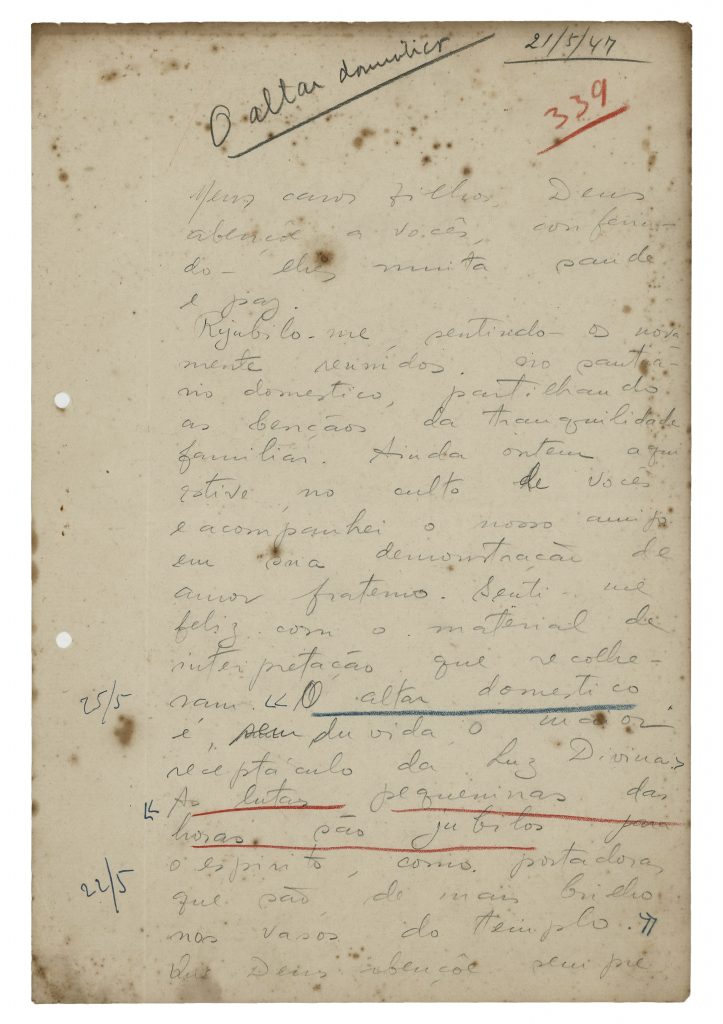 O altar domestico
21/5/47
339
Meus caros filhos, Deus
abençõe a vocês, conferin-
do-lhes muita saude
e paz.
Rejubilo-me, sentindo-os nova-
mente reunidos no santuá-
rio domestico, partilhando
as bençãos da tranquilidade
familiar. Ainda ontem aqui
estive, no culto de vocês
e acompanhei o nosso amigo
em sua demonstração de
amor fraterno. Senti-me
feliz com o material de
interpretação que recolhe-
ram. O altar domestico
25/5
é, sem duvida, o maior
receptáculo da Luz Divina.
As lutas pequeninas das
horas são jubilos para
o espirito, como portadoras
22/5
que são, de mais brilho
nos vasos do templo.
Que Deus abençõe sempre